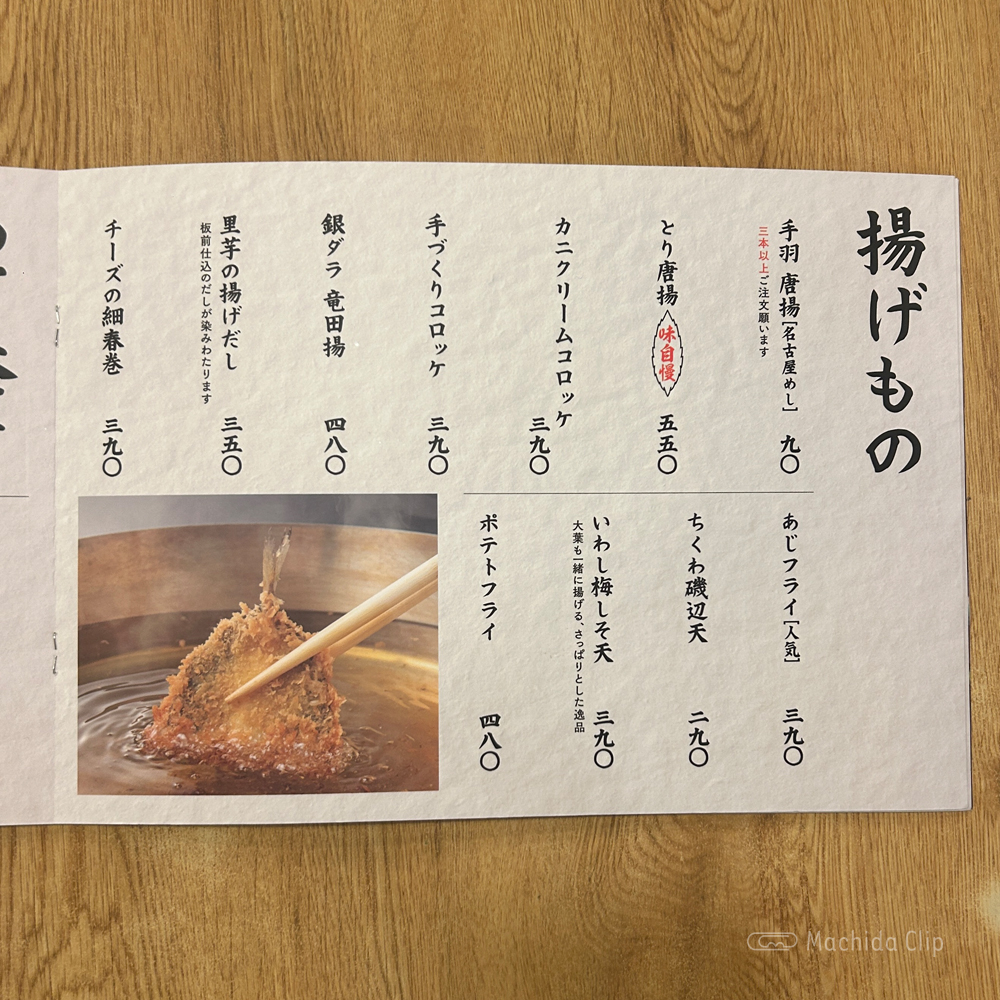 揚げもの
手羽 唐揚[名古屋めし] 九〇
三本以上ご注文願います
とり唐揚 味自慢 五五〇
カニクリームコロッケ 三九〇
手づくりコロッケ 三九〇
銀ダラ 竜田揚 四八〇
里芋の揚げだし 三五〇
板前仕込のだしが染みわたります
チーズの細春巻 三九〇
あじフライ[人気] 三九〇
ちくわ磯辺天 二九〇
いわし梅しそ天 三九〇
大葉も一緒に揚げる、さっぱりとした逸品
ポテトフライ 四八〇
Machida Clip